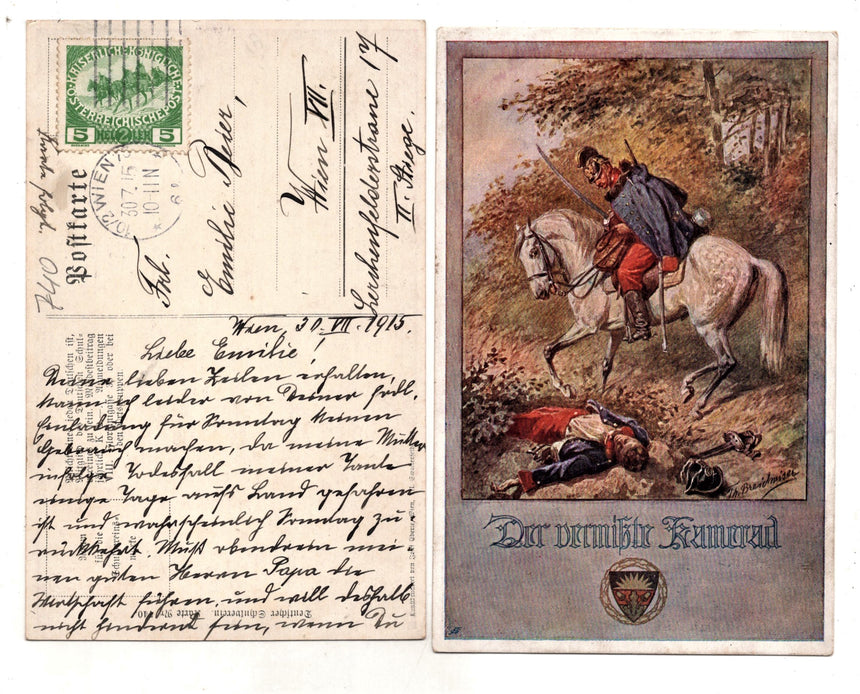 KAISERLICHE KÖNIGLICHE
ÖSTERREICHISCHE POST
5 HELLER 5
2
10/2 WIEN 75
30.7.15
10-11 N
* 6e
Postkarte
740
Frl.
Emilie Beier,
Wien VII.
Lerchenfelderstrasse 17
II. Stiege.
Wien, 30.VII.1915.
Liebe Emilie!
Deine lieben Zeilen erhalten,
kann ich leider von Deiner frdl.
Einladung für Sonntag keinen
Gebrauch machen, da meine Mutter
infolge Todesfall meiner Tante
einige Tage aufs Land gefahren
ist und wahrscheinlich Sonntag zu
rückkehrt. Muß obendrein mei
nen guten Herrn Papa die
Wirtschaft führen, und will deshalb
nicht hindernd sein, wenn Du
Deutscher Schulverein. Karte Nr. 740
Th. Breidwiser
Der vermißte Kamerad